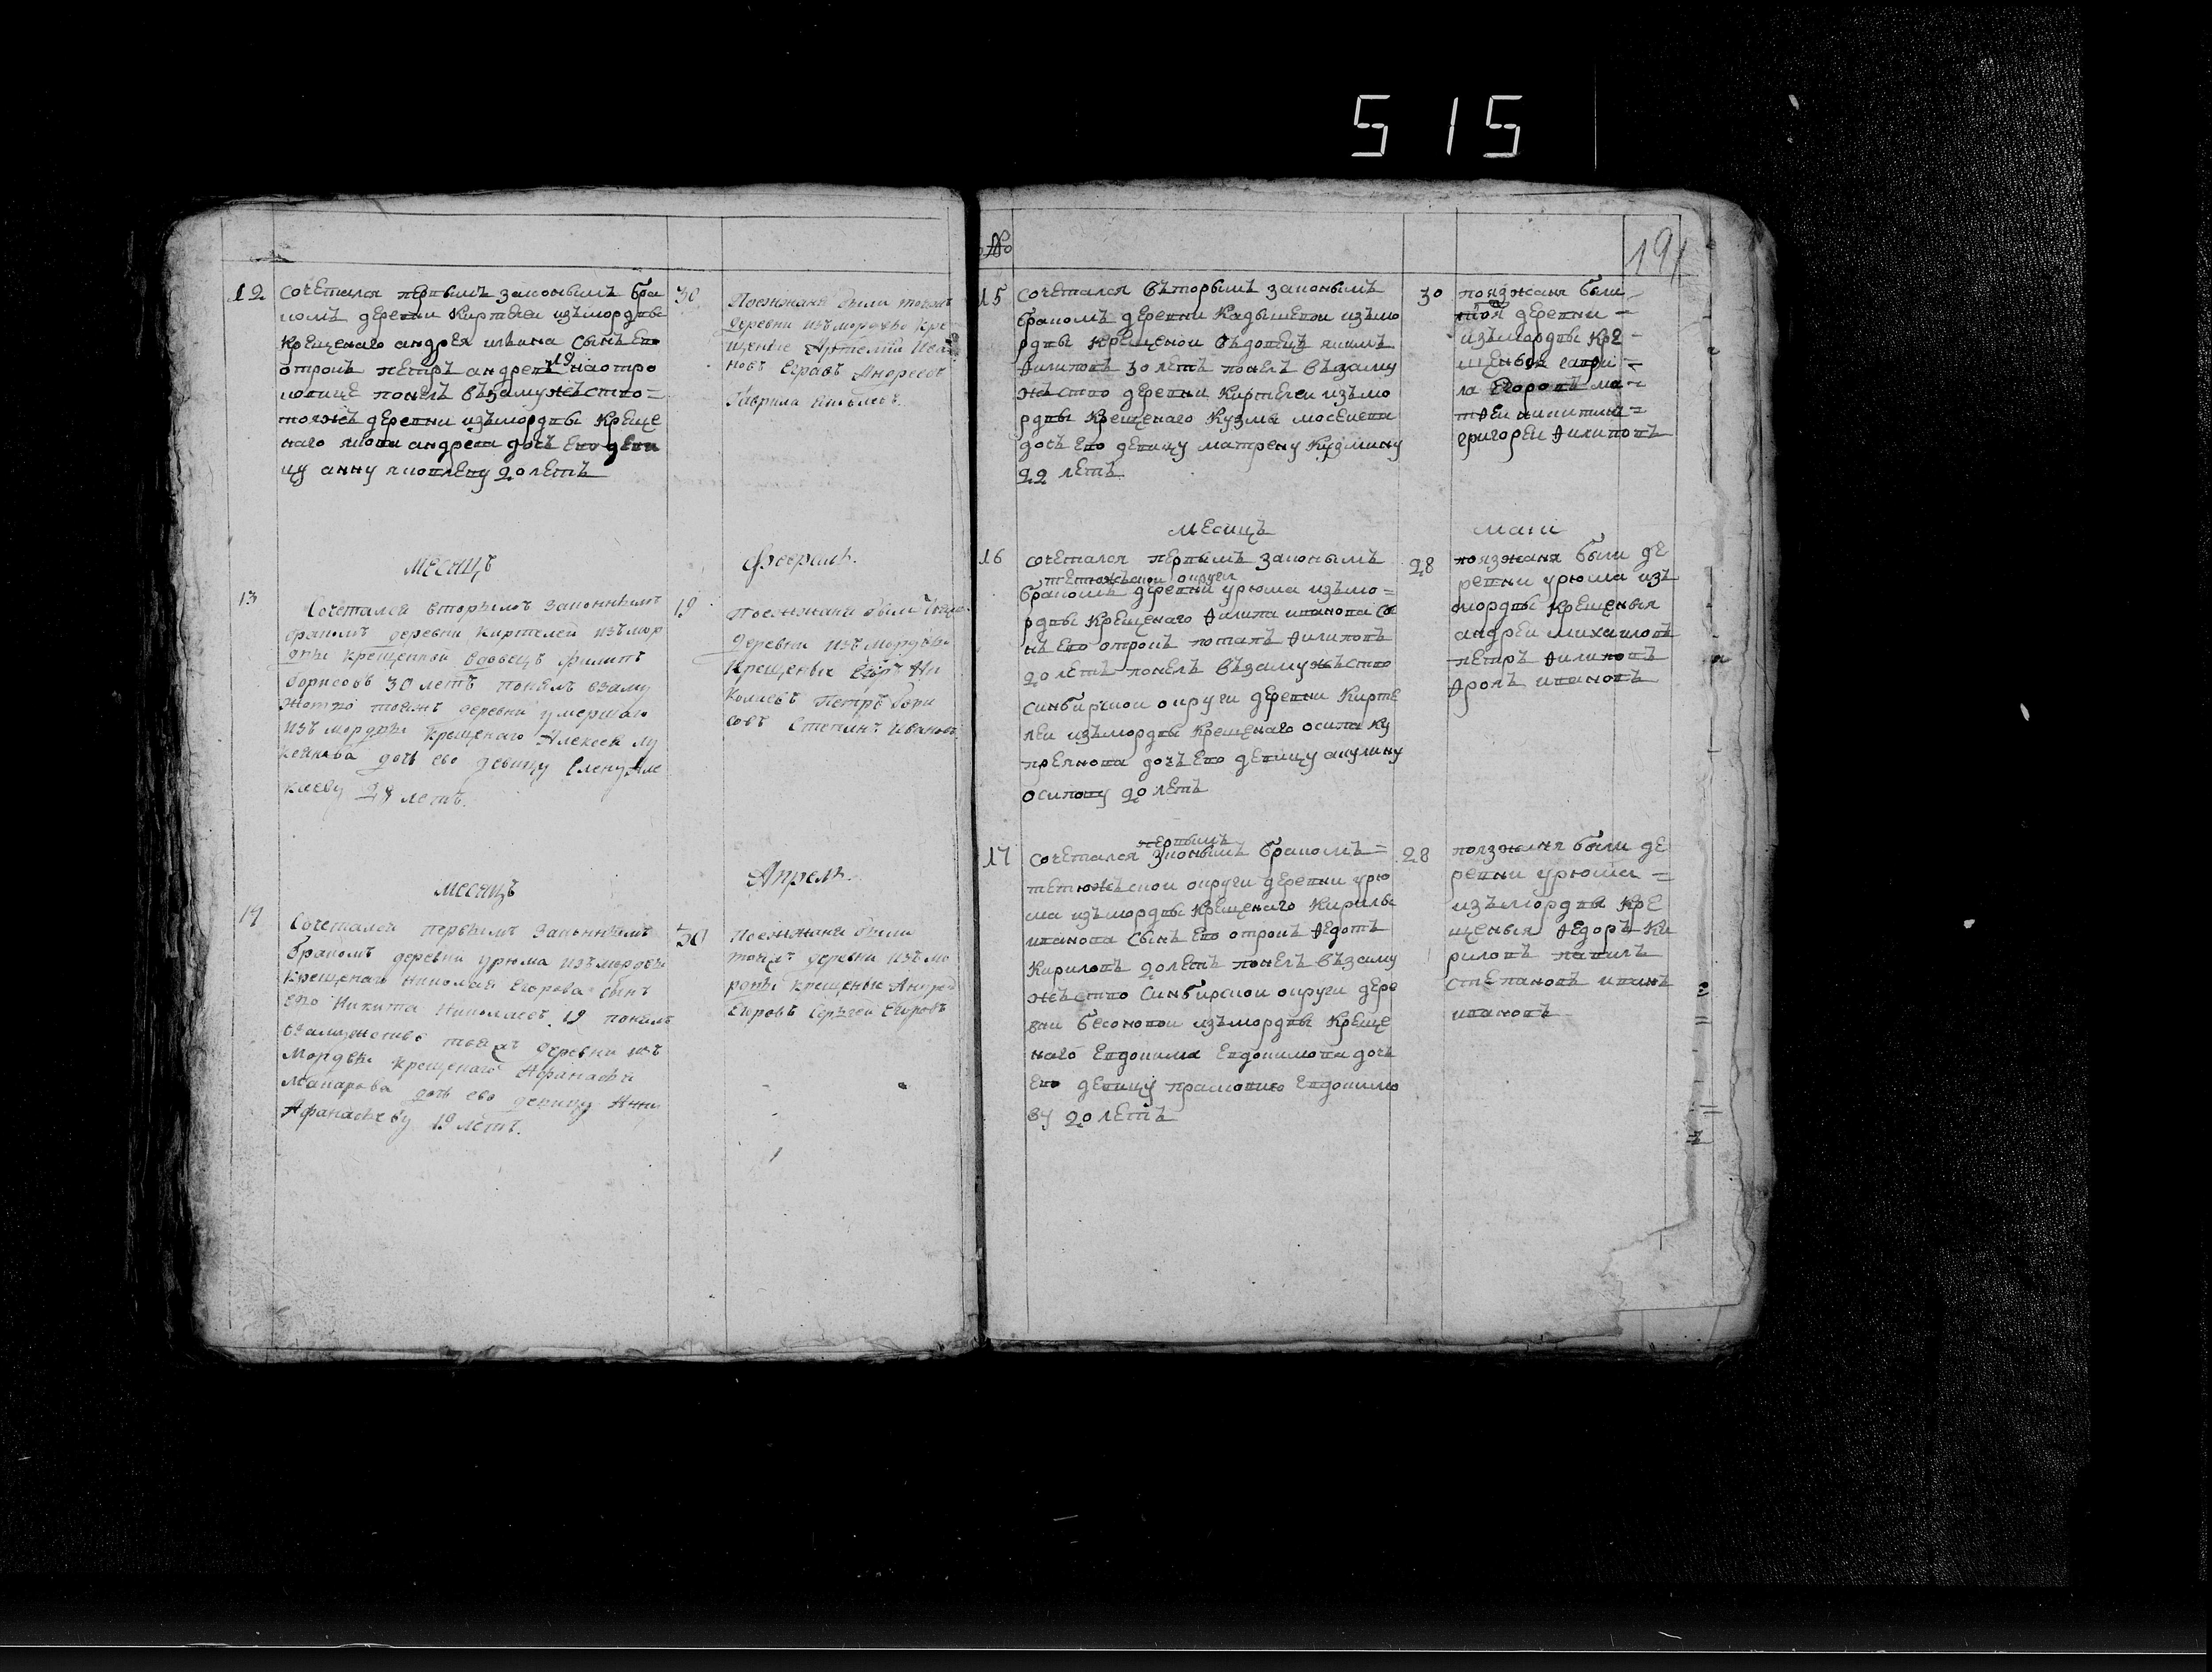 515
12
сочетался первымъ законымъ бра
комъ деревни Киртелеи изъмордвы
крещенаго андрея ивана сынъ ево
отрокъ петръ андреевъ 19 наотро
ковице понелъ възамужъство=
тояжъ деревни изъмордвы Креще
наго якова андреева дочъ ево деви
цу анну яковлеву 20 летъ
30
Поезжаня были тоежъ
деревни изъ мордвы кре
щеные Артемий Ива
новъ Егоръ Андреевъ
Гаврила
месяцъ
Февраль.
13
Сочетался вторымъ законнымъ
бракомъ деревни Киртелей изъ мор
двы крещенной вдовецъ Филипъ
Борисовъ 30 летъ понелъ взаму
жство тоежъ деревни умершаго
изъ мордвы крещенаго Алексея Лу
кеянова дочь ево девицу Елену Але
ксеву 28 летъ.
19
Поезжаня были тоежъ
деревни изъ мордвы
Крещеные Егоръ Ни
колаевъ Петръ Бори
совъ Степанъ Ивановъ
месяцъ
Апрель.
14
Сочетался первымъ законнымъ
бракомъ деревни урюма изъмордвы
крещенаго Николая Егорова сынъ
ево Никита Николаевъ 19 понелъ
взамужство тоежъ деревни изъ
Мордвы крещенаго Афанасья
Макарова дочь ево девицу Анну
Афанасьеву 19 летъ.
30
Поезжаня были
тоежъ деревни изъ мо
рдвы крещеные Андрей
Егоровъ Сергей Егоровъ
№
191
15
сочетался въторымъ законымъ
бракомъ деревни Кадышевои изъмо
рдвы крещенои въдовецъ якимъ
Филиповъ 30 летъ понелъ възаму
жъство деревни Киртелеи изъмо
рдвы Крещенаго Кузмы мосеиева
дочъ ево девицу матрену Кузмину
22 летъ
30
пояжаня были
тоя деревни =
изъмордвы кре =
щеныя гаври =
ла Егоровъ ма =
тфеи никитинъ =
григореи Филиповъ
месицъ
маи
16
сочетался первымъ законымъ
тетюжъскои округи
бракомъ деревни урюма изъмо=
рдвы крещенаго Филипа иванова сы
нъ ево отрокъ потапъ Филиповъ
20 летъ понелъ възамужъство
синбирскои округи деревни Кирте
леи изъмордвы Крещенаго осипа ку
преянова дочъ ево девицу акулину
осипову 20 летъ
28
поязжаня были де
ревни урюма изъ
мордвы крещеныя
андреи михаиловъ
петръ Филиповъ
Фролъ ивановъ
17
первымъ
сочетался зконымъ бракомъ=
тетюжъскои округи деревни урю
ма изъмордвы крещенаго Кирилы
иванова сынъ ево отрокъ Федотъ
Кириловъ 20 летъ понелъ възаму
жъство Синбирскои округи дере
вни бесоновои изъмордвы Креще
наго Евдокима Евдокимова дочъ
ево девицу прасковию Евдокимо
ву 20 летъ
28
поязжаня были де
ревни урюма =
изъмордвы кре
щеныя Федоръ Ки
риловъ павилъ
степановъ иванъ
ивановъ